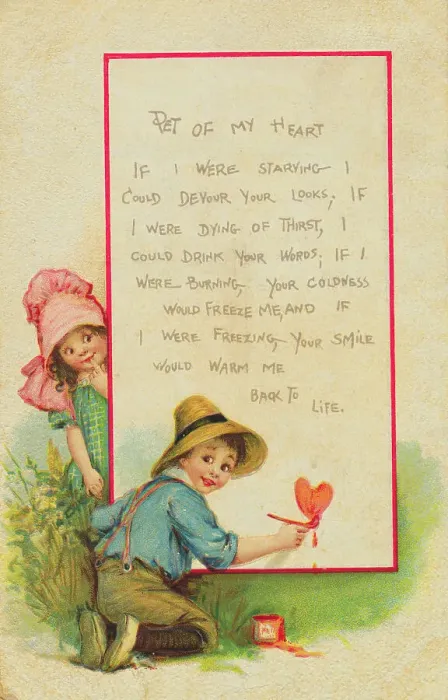 PET OF MY HEART
IF I WERE STARVING I
COULD DEVOUR YOUR LOOKS; IF
I WERE DYING OF THIRST, I
COULD DRINK YOUR WORDS; IF I
WERE BURNING, YOUR COLDNESS
WOULD FREEZE ME, AND IF
I WERE FREEZING, YOUR SMILE
WOULD WARM ME
BACK TO LIFE.